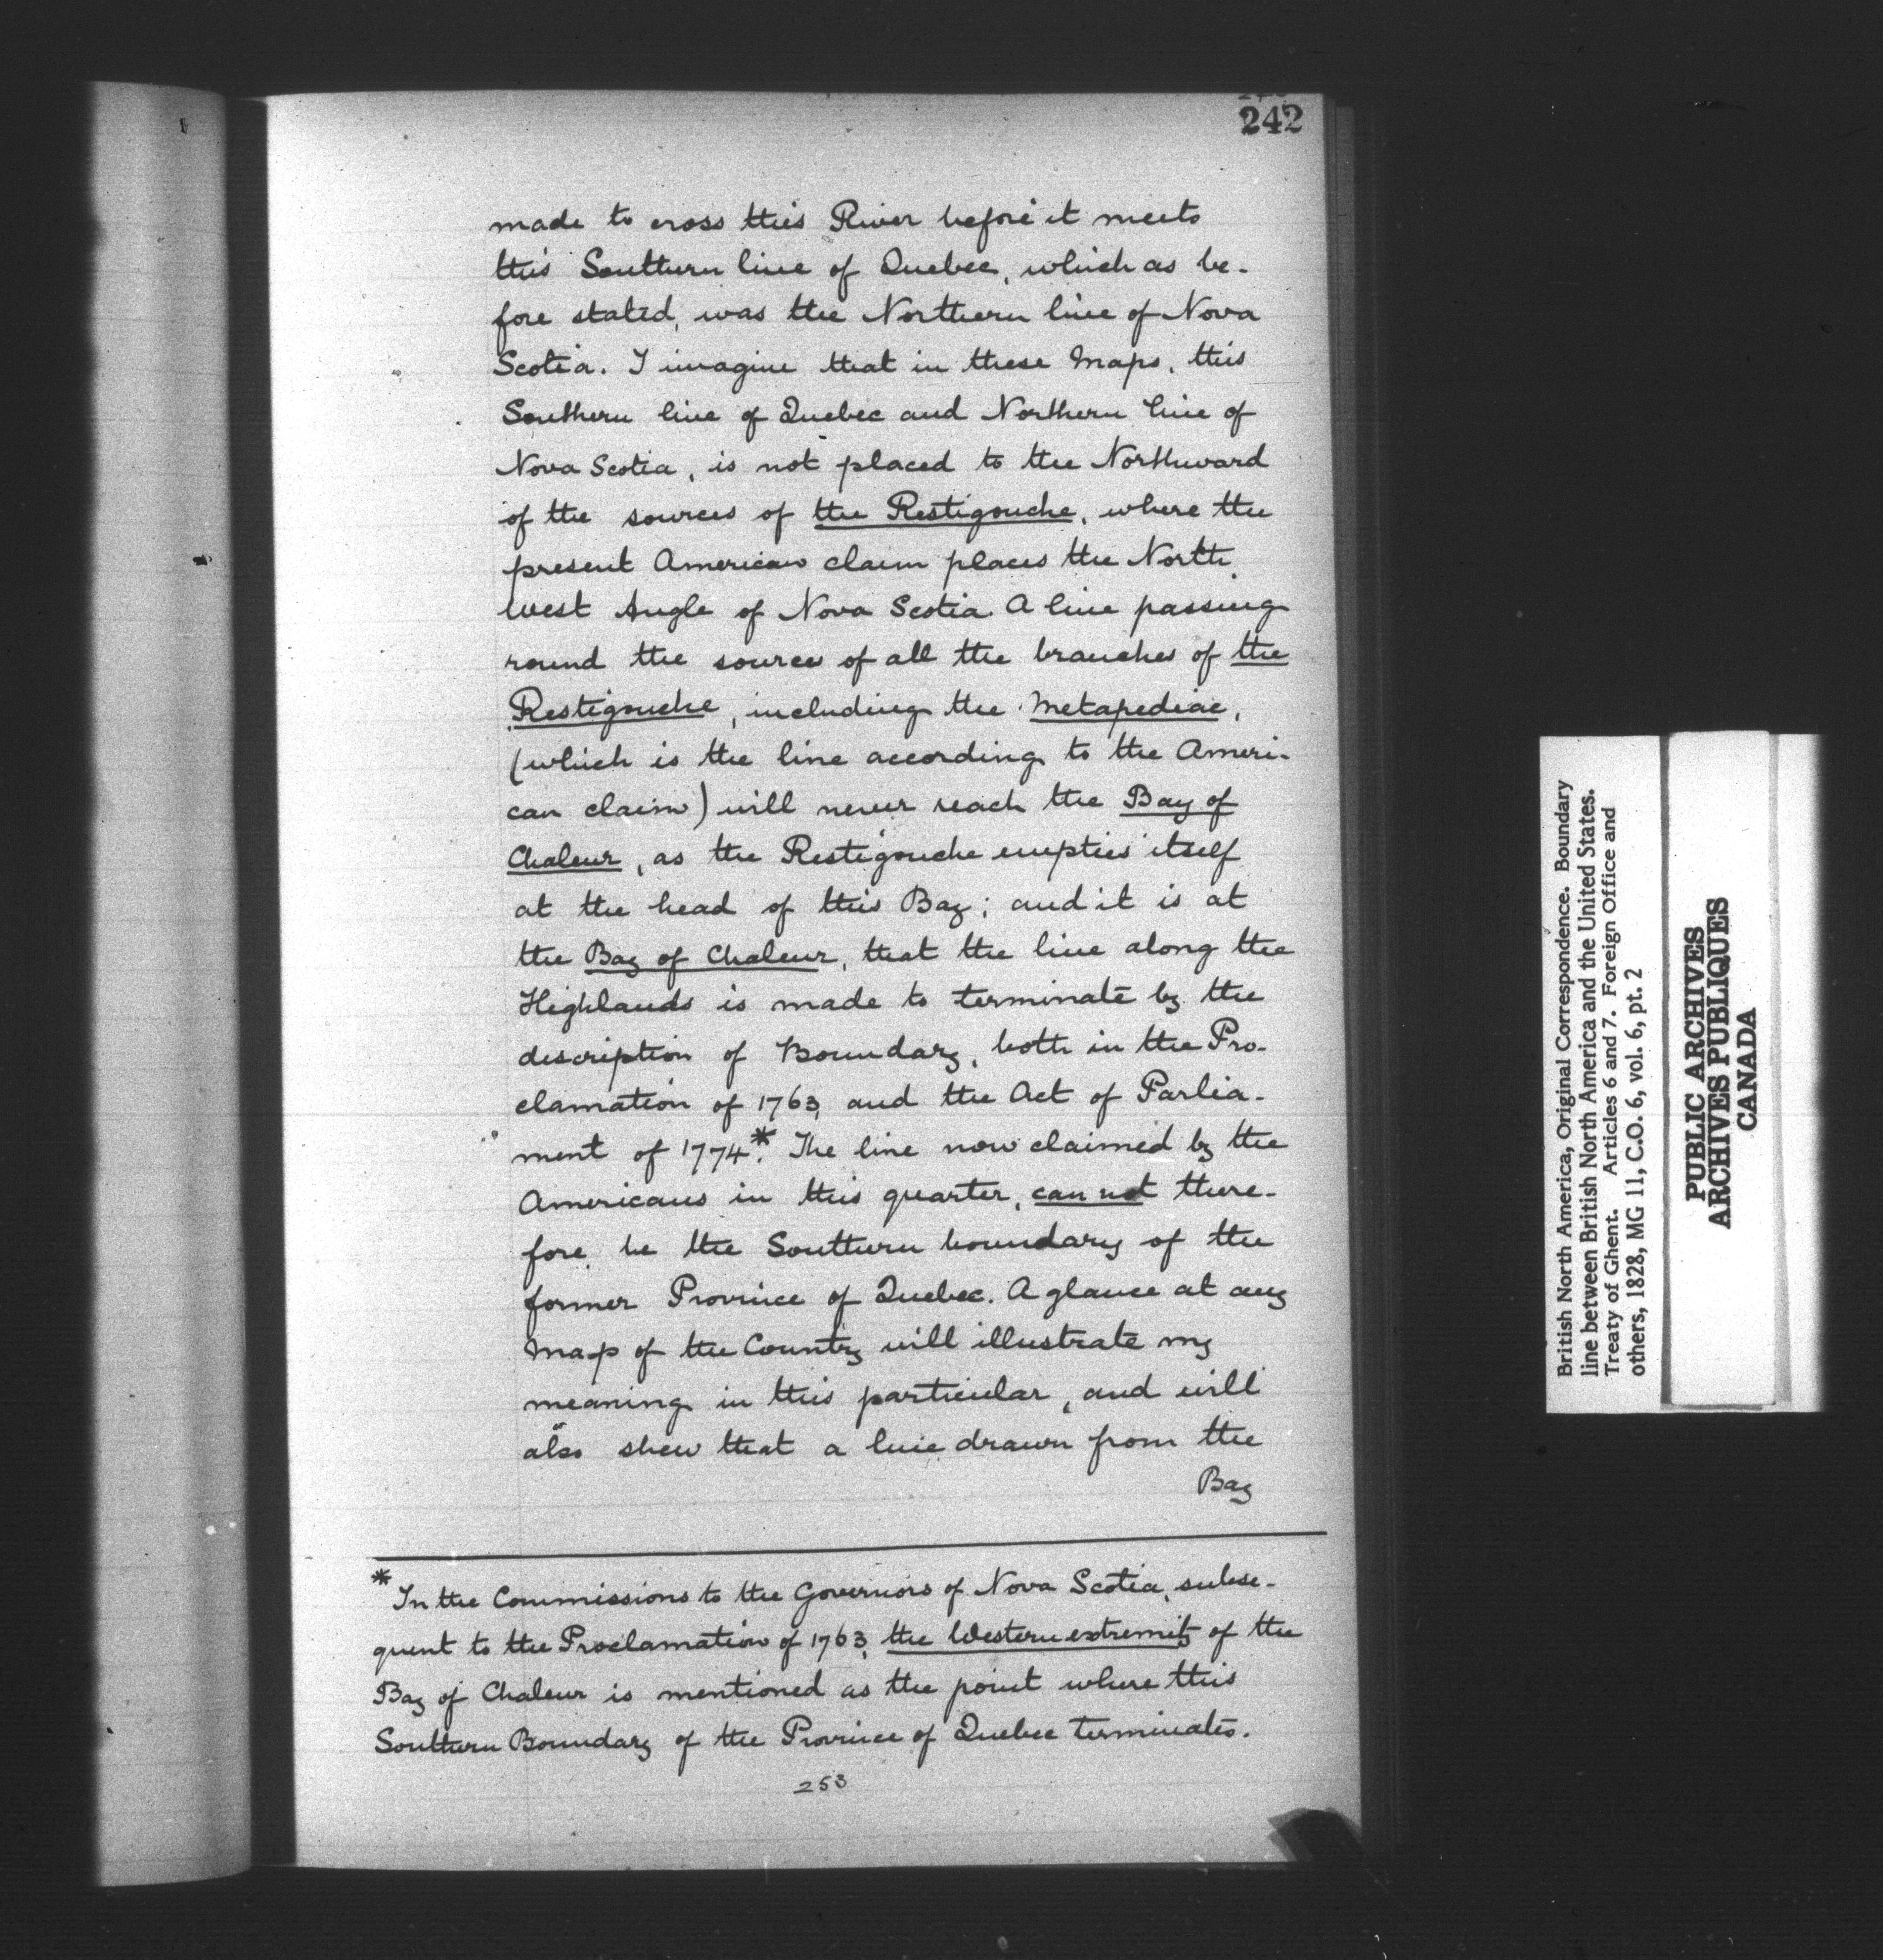 242
made to cross this River before it meets
this Southern line of Quebec, which as be-
fore stated, was the Northern line of Nova
Scotia. I imagine that in these Maps, this
Southern line of Quebec and Northern line of
Nova Scotia, is not placed to the Northward
of the sources of the Restigouche, where the
present American claim places the North
West Angle of Nova Scotia. A line passing
round the sources of all the branches of the
Restigouche, including the Metapediac,
(which is the line according to the Ameri-
can claim) will never reach the Bay of
Chaleur, as the Restigouche empties itself
at the head of this Bay; and it is at
the Bay of Chaleur, that the line along the
Highlands is made to terminate by the
description of Boundary, both in the Pro-
clamation of 1763, and the Act of Parlia-
ment of 1774*. The line now claimed by the
Americans in this quarter, can not there-
fore, be the Southern boundary of the
former Province of Quebec. A glance at any
Map of the Country will illustrate my
meaning in this particular, and will
also shew that a line drawn from the
Bay
* In the Commissions to the Governors of Nova Scotia, subse-
quent to the Proclamation of 1763, the Western extremity of the
Bay of Chaleur is mentioned as the point where this
Southern Boundary of the Province of Quebec terminates.
253
British North America, Original Correspondence. Boundary
line between British North America and the United States.
Treaty of Ghent. Articles 6 and 7. Foreign Office and
others, 1828, MG 11, C.O. 6, vol. 6, pt. 2
PUBLIC ARCHIVES
ARCHIVES PUBLIQUES
CANADA